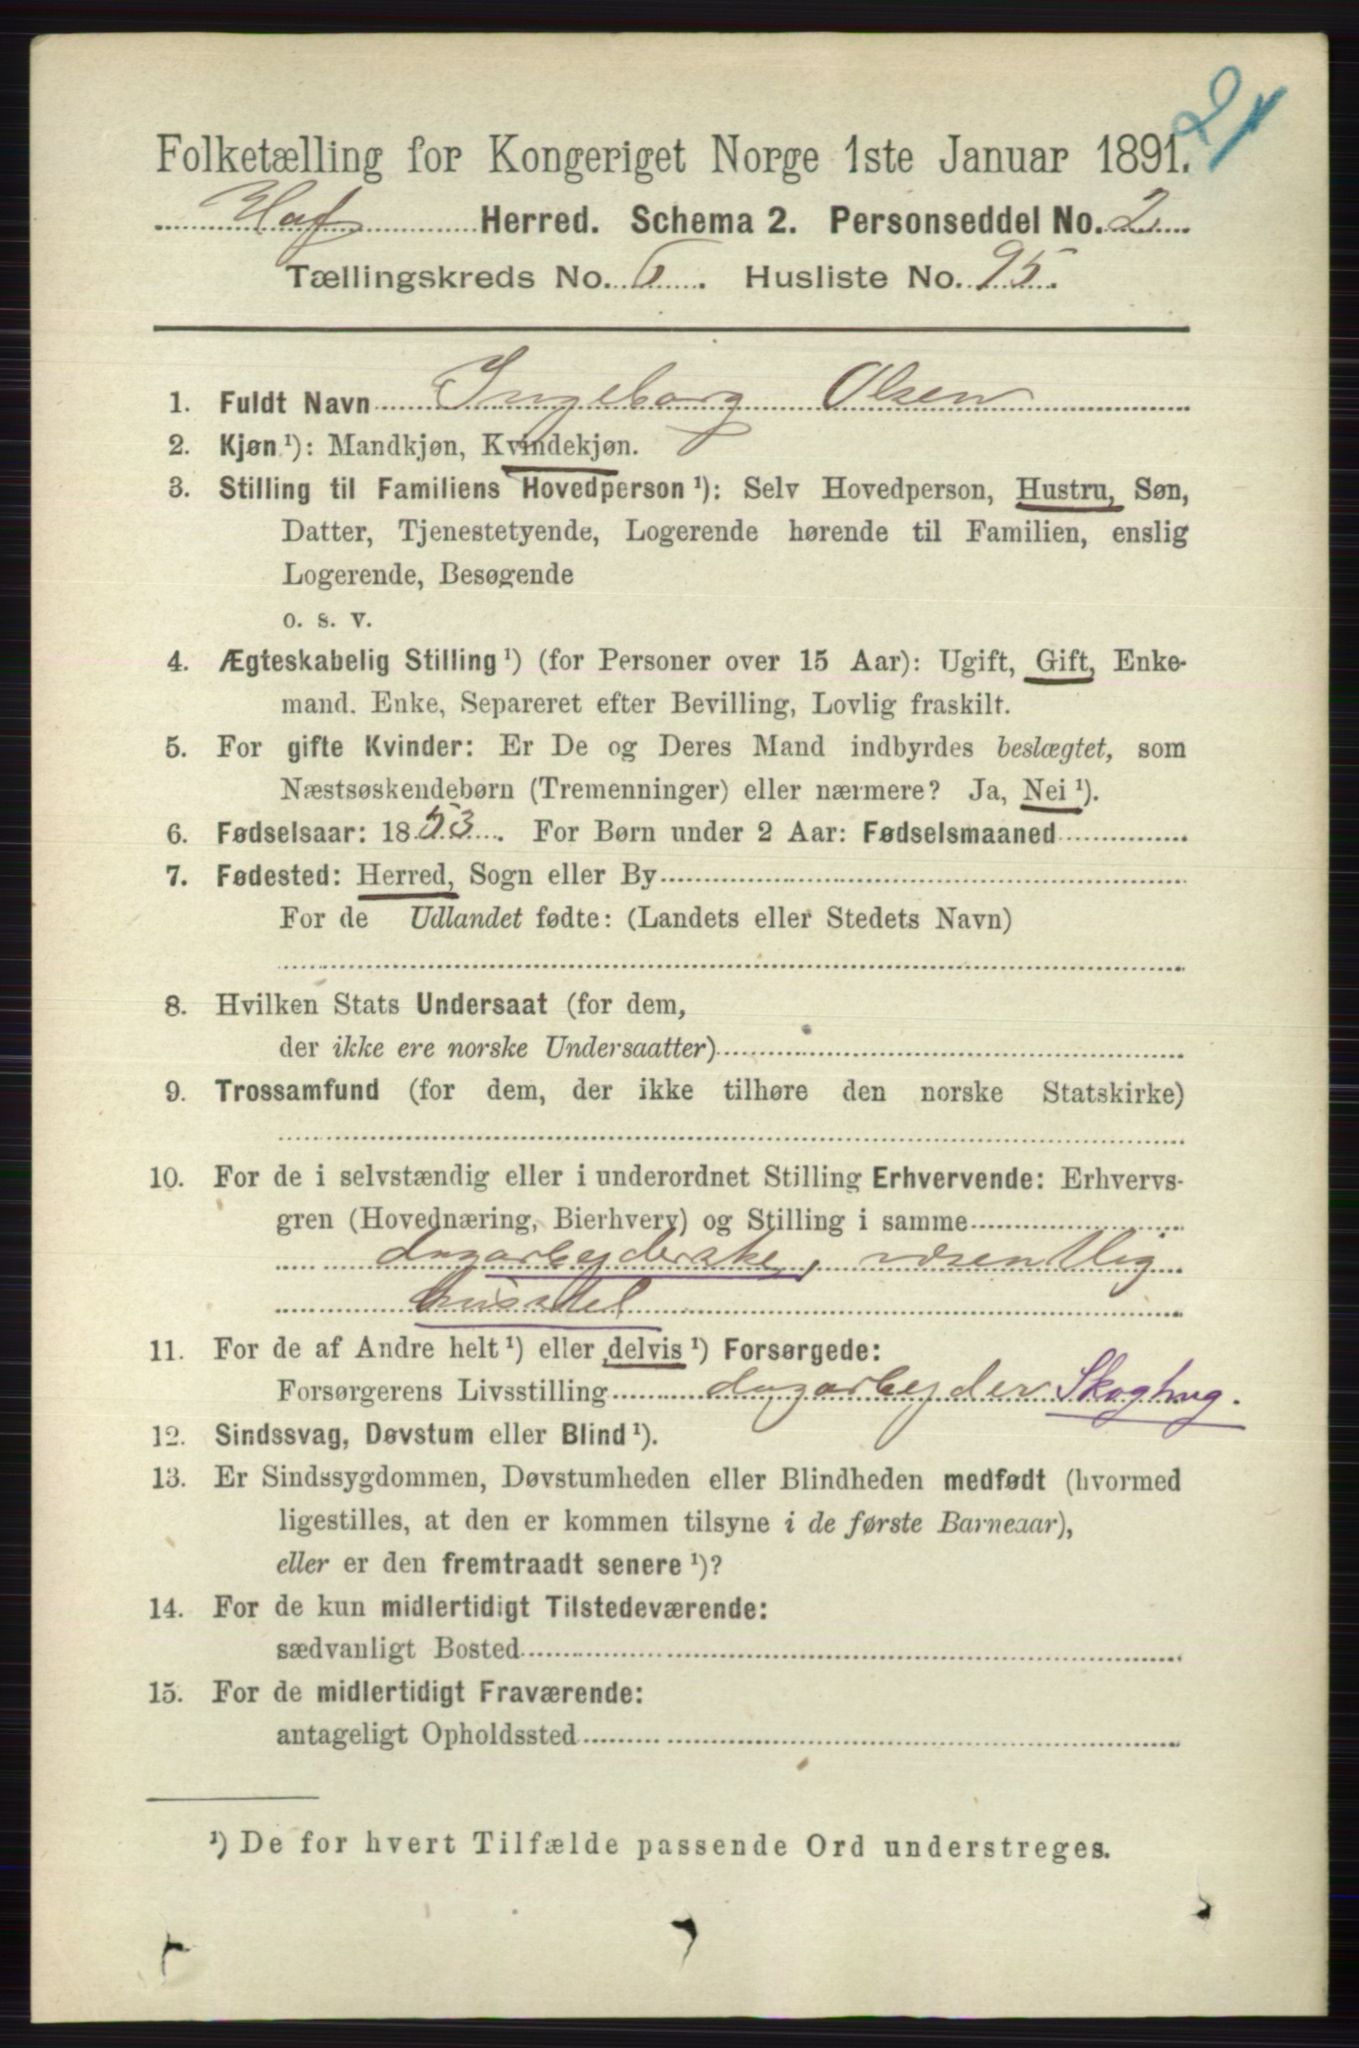 21
Folketælling for Kongeriget Norge 1ste Januar 1891.
Hof Herred. Schema 2. Personseddel No. 2
Tællingskreds No. 6. Husliste No. 95.
1. Fuldt Navn Ingeborg Olsen
2. Kjøn ¹): Mandkjøn, Kvindekjøn.
3. Stilling til Familiens Hovedperson ¹): Selv Hovedperson, Hustru, Søn,
Datter, Tjenestetyende, Logerende hørende til Familien, enslig
Logerende, Besøgende
o. s. v.
4. Ægteskabelig Stilling ¹) (for Personer over 15 Aar): Ugift, Gift, Enke-
mand. Enke, Separeret efter Bevilling, Lovlig fraskilt.
5. For gifte Kvinder: Er De og Deres Mand indbyrdes beslægtet, som
Næstsøskendebørn (Tremenninger) eller nærmere? Ja, Nei ¹).
6. Fødselsaar: 1853. For Børn under 2 Aar: Fødselsmaaned
7. Fødested: Herred, Sogn eller By
For de Udlandet fødte: (Landets eller Stedets Navn)
8. Hvilken Stats Undersaat (for dem,
der ikke ere norske Undersaatter)
9. Trossamfund (for dem, der ikke tilhøre den norske Statskirke)
10. For de i selvstændig eller i underordnet Stilling Erhvervende: Erhvervs-
gren (Hovednæring, Bierhverv) og Stilling i samme
dagarbejderske, væsentlig
husstel
11. For de af Andre helt ¹) eller delvis ¹) Forsørgede:
Forsørgerens Livsstilling dagarbejder Skoghug.
12. Sindssvag, Døvstum eller Blind ¹).
13. Er Sindssygdommen, Døvstumheden eller Blindheden medfødt (hvormed
ligestilles, at den er kommen tilsyne i de første Barneaar),
eller er den fremtraadt senere ¹)?
14. For de kun midlertidigt Tilstedeværende:
sædvanligt Bosted
15. For de midlertidigt Fraværende:
antageligt Opholdssted
¹) De for hvert Tilfælde passende Ord understreges.